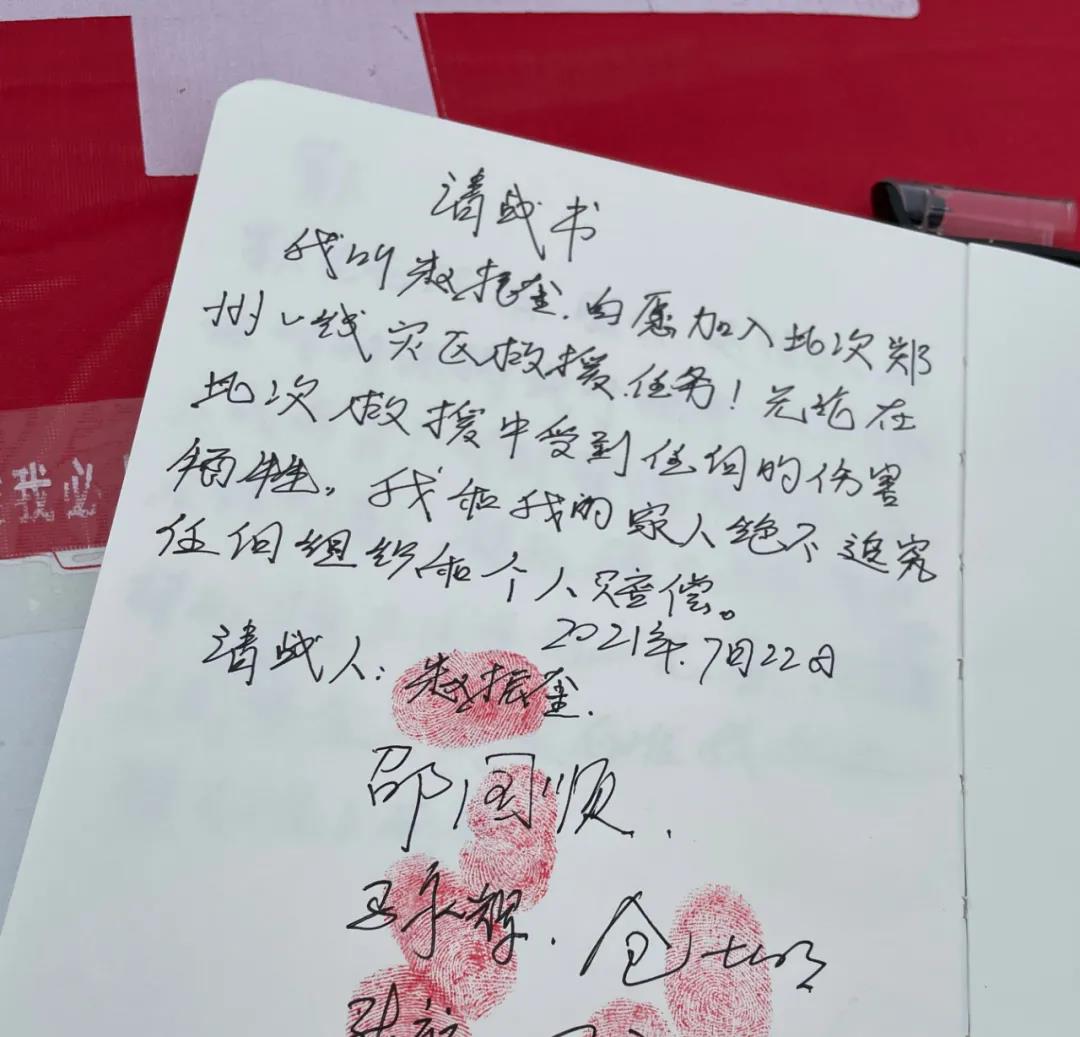 我必
请战书
我叫赵振金.自愿加入此次郑
州一线灾区救援任务！无论在
此次救援中受到任何的伤害
牺牲。我和我的家人绝不追究
任何组织和个人赔偿。
2021年.7月22日
请战人：赵振金.
邵国顺.
王永辉.